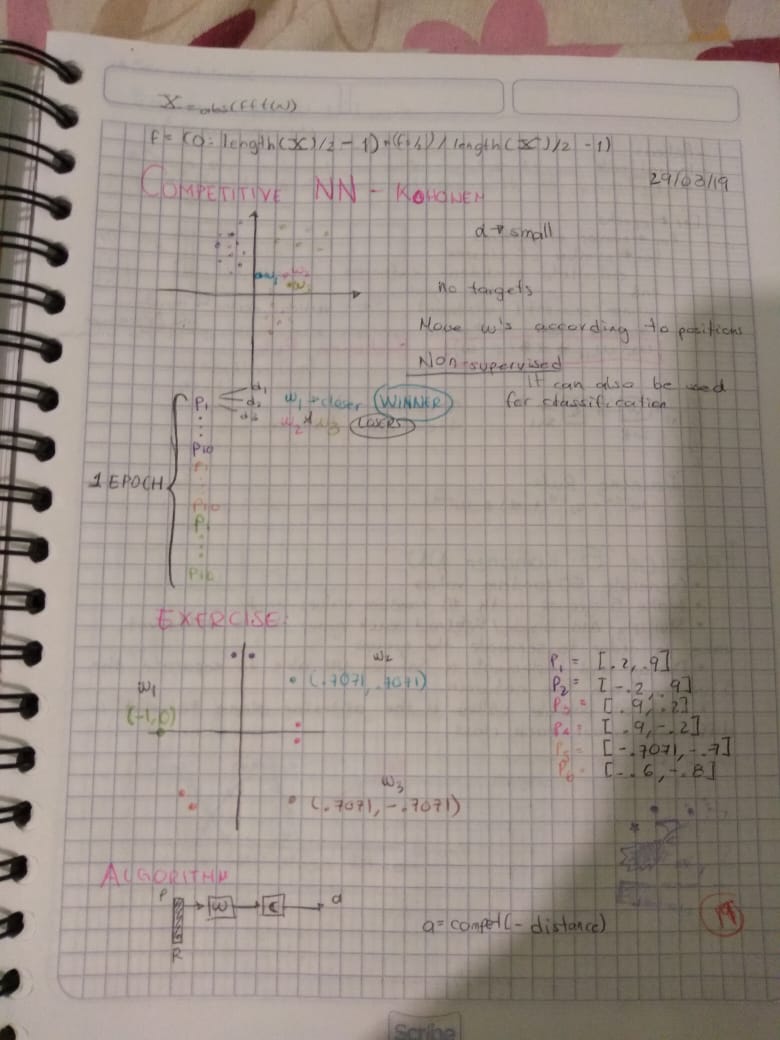 X = abs(fft(w)
f = (0: length(X)/2 - 1) * (fs/2) / length(X)/2 - 1)
29/03/19
COMPETITIVE NN - KOHONEN
α → small
w1 w2
w3
No targets
Move w's according to positions
Non-supervised
It can also be used
for classification
P1 d1 d2 d3 w1 → closer WINNER
w2 w3 LOSERS
P10
1 EPOCH
P1
P10
P1
P10
EXERCISE:
w1
(-1,0)
w2
(.7071, .7071)
w3
(.7071, -.7071)
P1 = [.2, .9]
P2 = [-.2, .9]
P3 = [.9, .2]
P4 = [.9, -.2]
P5 = [-.7071, -.7]
P6 = [-.6, -.8]
ALGORITHM
P W C a
R
a = compet(- distance)
19
Scribe